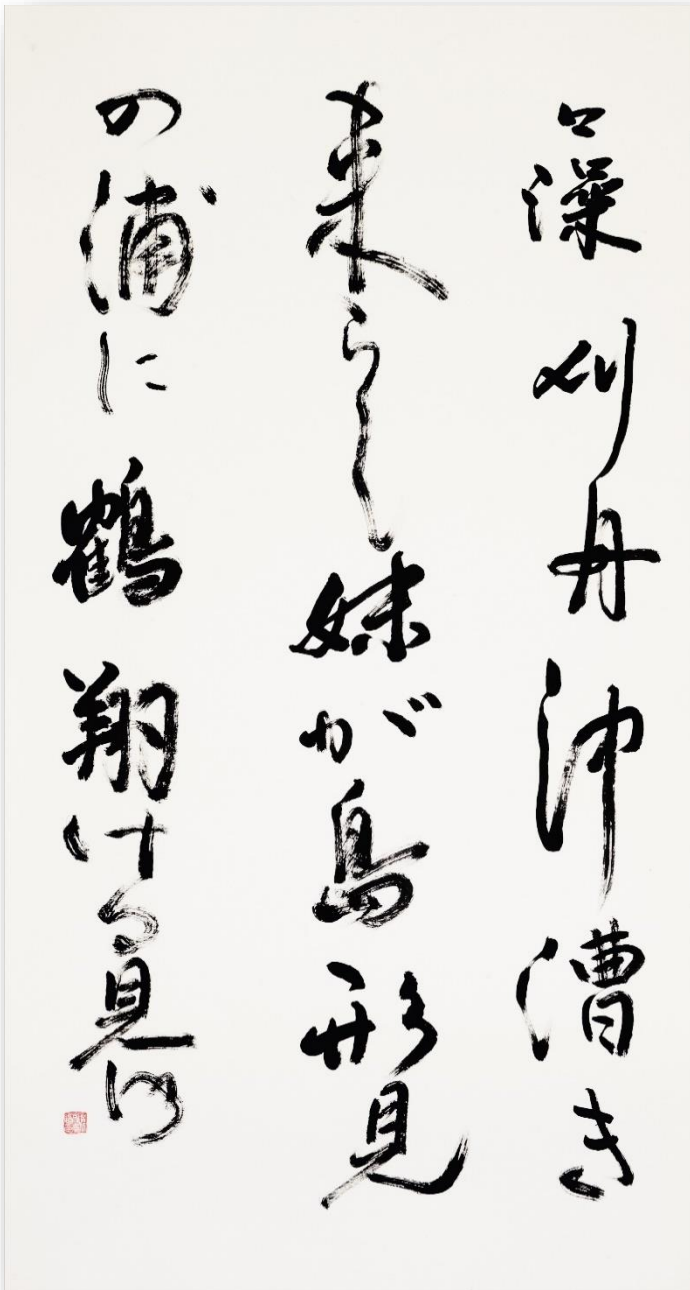 藻刈舟沖漕き
来らし妹が島形見
の浦に鶴翔ける見ゆ